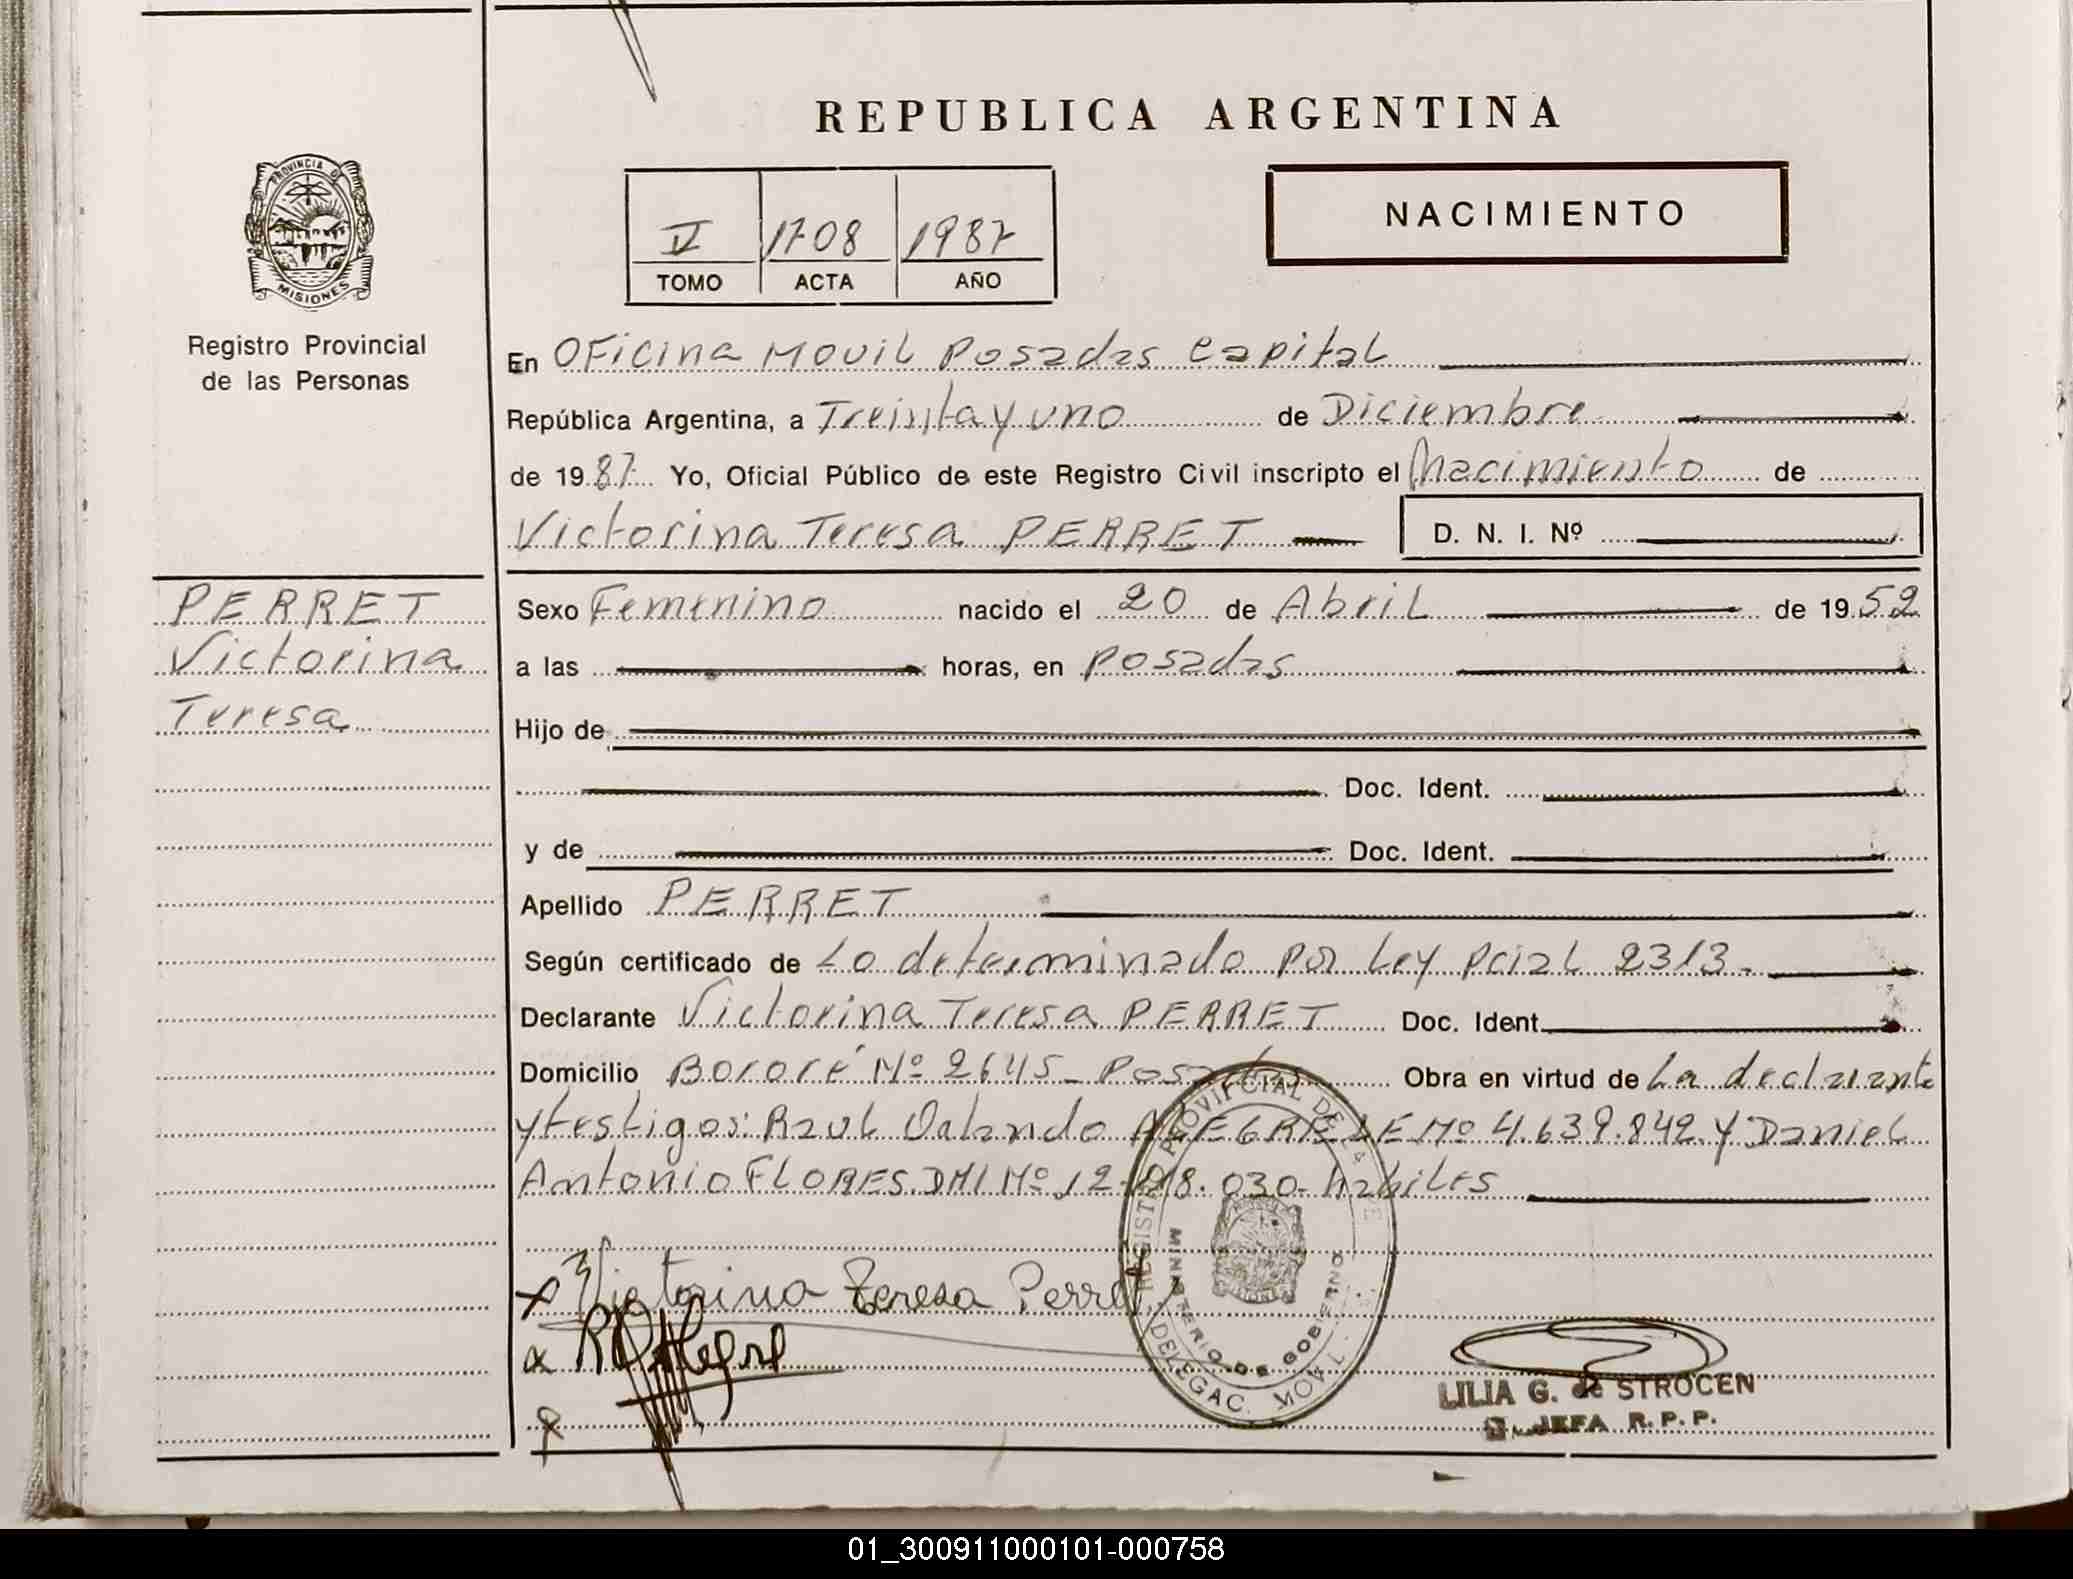 REPUBLICA ARGENTINA
PROVINCIA DE
MISIONES
Registro Provincial
de las Personas
V 1708 1987
TOMO ACTA AÑO
NACIMIENTO
En Oficina Movil Posadas Capital
República Argentina, a Treinta y uno de Diciembre
de 19 87 Yo, Oficial Público de este Registro Civil inscripto el Nacimiento de
Victorina Teresa PERRET D. N. I. Nº
PERRET
Victorina
Teresa
Sexo Femenino nacido el 20 de Abril de 19 52
a las horas, en Posadas
Hijo de
Doc. Ident.
y de Doc. Ident.
Apellido PERRET
Según certificado de Lo determinado por Ley Pcial 2313.
Declarante Victorina Teresa PERRET Doc. Ident.
Domicilio Bororé Nº 2645 - Posadas Obra en virtud de La declarante
y testigos: Raul Orlando ALEGRE LE Nº 4.639.842 y Daniel
Antonio FLORES DNI Nº 12. .030- habiles
Victorina Teresa Perret
R O Alegre
REGISTRO PROVINCIAL DE LA
MINISTERIO DE GOBIERNO
DELEGAC. MOVIL
LILIA G. de STROCEN
JEFA R. P. P.
01_300911000101-000758